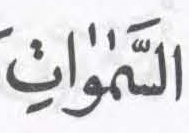 السَّمٰوٰاتِ